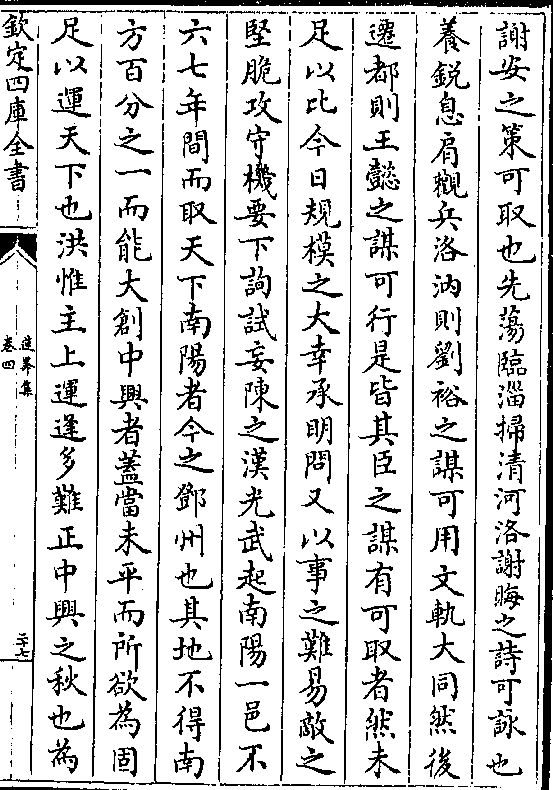 謝安之策可取也先蕩臨淄掃清河洛謝晦之詩可詠也
養鋭息肩觀兵洛汭則劉裕之謀可用文軌大同然後
遷都則王懿之謀可行是皆其臣之謀有可取者然未
足以比今日規模之大幸承明問又以事之難易敵之
堅脆攻守機要下詢試妄陳之漢光武起南陽一邑不
六七年間而取天下南陽者今之鄧州也其地不得南
方百分之一而能大創中興者蓋當未平而所欲為固
足以運天下也洪惟主上運逢多難正中興之秋也為
欽定四庫全書
卷四
二十七